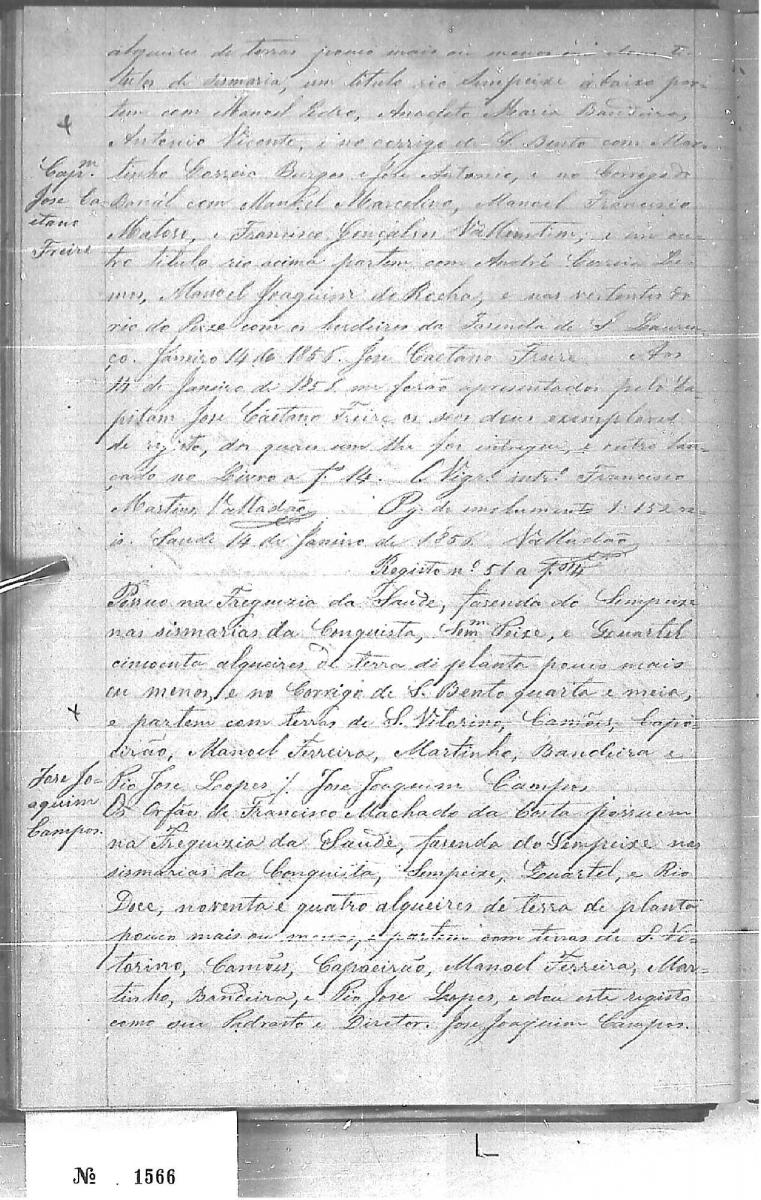 alqueires de terras pouco mais ou menos
tulos de sismaria, um titulo rio Sempeixe abaixo par-
tem com Manoel Pedro, Anacleto Maria Bandeira,
Antonio Vicente, e no corrigo de S. Bento com Mar-
tinho Correia Burgos, e Jose Antonio, e no Corrigo do
Banál com Manoel Marcelino, Manoel Francisco
Matoso, e Francisco Gonçalves Vallentim, e um ou-
tro titulo rio acima partem com André Correia Le-
mos, Manoel Joaquim da Rocha, e nas vertentes do
rio do Peixe com os herdeiros da Fasenda de S. Louren-
ço. Janeiro 14 de 1856. Jose Caetano Freire. Aos
14 de Janeiro de 1856 me forão apresentados pelo Ca-
pitam Jose Caetano Freire os seos dous exemplares
de registo, dos quaes um lhe foi intregue, e outro lan-
çado no Livro a fs 14. O Vigrº intrº Francisco
Martins Valladão Pg. de emolumento 1:152 re-
is. Saude 14 de Janeiro de 1856. Valladão
Registo nº 51 a fs 14
Possuo na Freguizia da Saude, fasenda do Sempeixe
nas sismarias da Conquista, Semᵐ Peixe, e Quartel
cincoenta alqueires de terra de planta pouco mais
ou menos, e no Corrigo de S. Bento quarta e meia,
e partem com terras de S. Vitorino, Camões, Capo-
eirão, Manoel Ferreira, Martinho, Bandeira e
Pio Jose Lopes /. Jose Joaquim Campos
Os Orfãos de Francisco Machado da Costa possuem
na Freguizia da Saude, fasenda do Sempeixe nas
sismarias da Conquista, Sempeixe, Quartel, e Rio
Doce, noventa e quatro alqueires de terra de planta
pouco mais ou menos, e partem com terras de S. Vi-
torino, Camões, Capoeirão, Manoel Ferreira, Mar-
tinho, Bandeira, e Pio Jose Lopes, e dou este registo
como seu Padrasto e Diretor. Jose Joaquim Campos.
Capᵐ.
Jose Ca-
etano
Freire
Jose Jo-
aquim
Campos.
Nº 1566